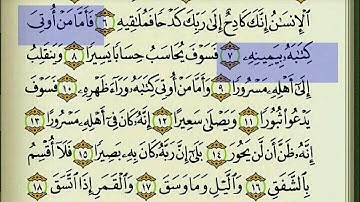 الْإِنسَٰنُ إِنَّكَ كَادِحٌ إِلَىٰ رَبِّكَ كَدْحًا فَمُلَٰقِيهِ ٦ فَأَمَّا مَنْ أُوتِىَ
كِتَٰبَهُۥ بِيَمِينِهِۦ ٧ فَسَوْفَ يُحَاسَبُ حِسَابًا يَسِيرًا ٨ وَيَنقَلِبُ
إِلَىٰٓ أَهْلِهِۦ مَسْرُورًا ٩ وَأَمَّا مَنْ أُوتِىَ كِتَٰبَهُۥ وَرَآءَ ظَهْرِهِۦ ١٠ فَسَوْفَ
يَدْعُوا۟ ثُبُورًا ١١ وَيَصْلَىٰ سَعِيرًا ١٢ إِنَّهُۥ كَانَ فِىٓ أَهْلِهِۦ مَسْرُورًا ١٣
إِنَّهُۥ ظَنَّ أَن لَّن يَحُورَ ١٤ بَلَىٰٓ إِنَّ رَبَّهُۥ كَانَ بِهِۦ بَصِيرًا ١٥ فَلَآ أُقْسِمُ
بِٱلشَّفَقِ ١٦ وَٱلَّيْلِ وَمَا وَسَقَ ١٧ وَٱلْقَمَرِ إِذَا ٱتَّسَقَ ١٨